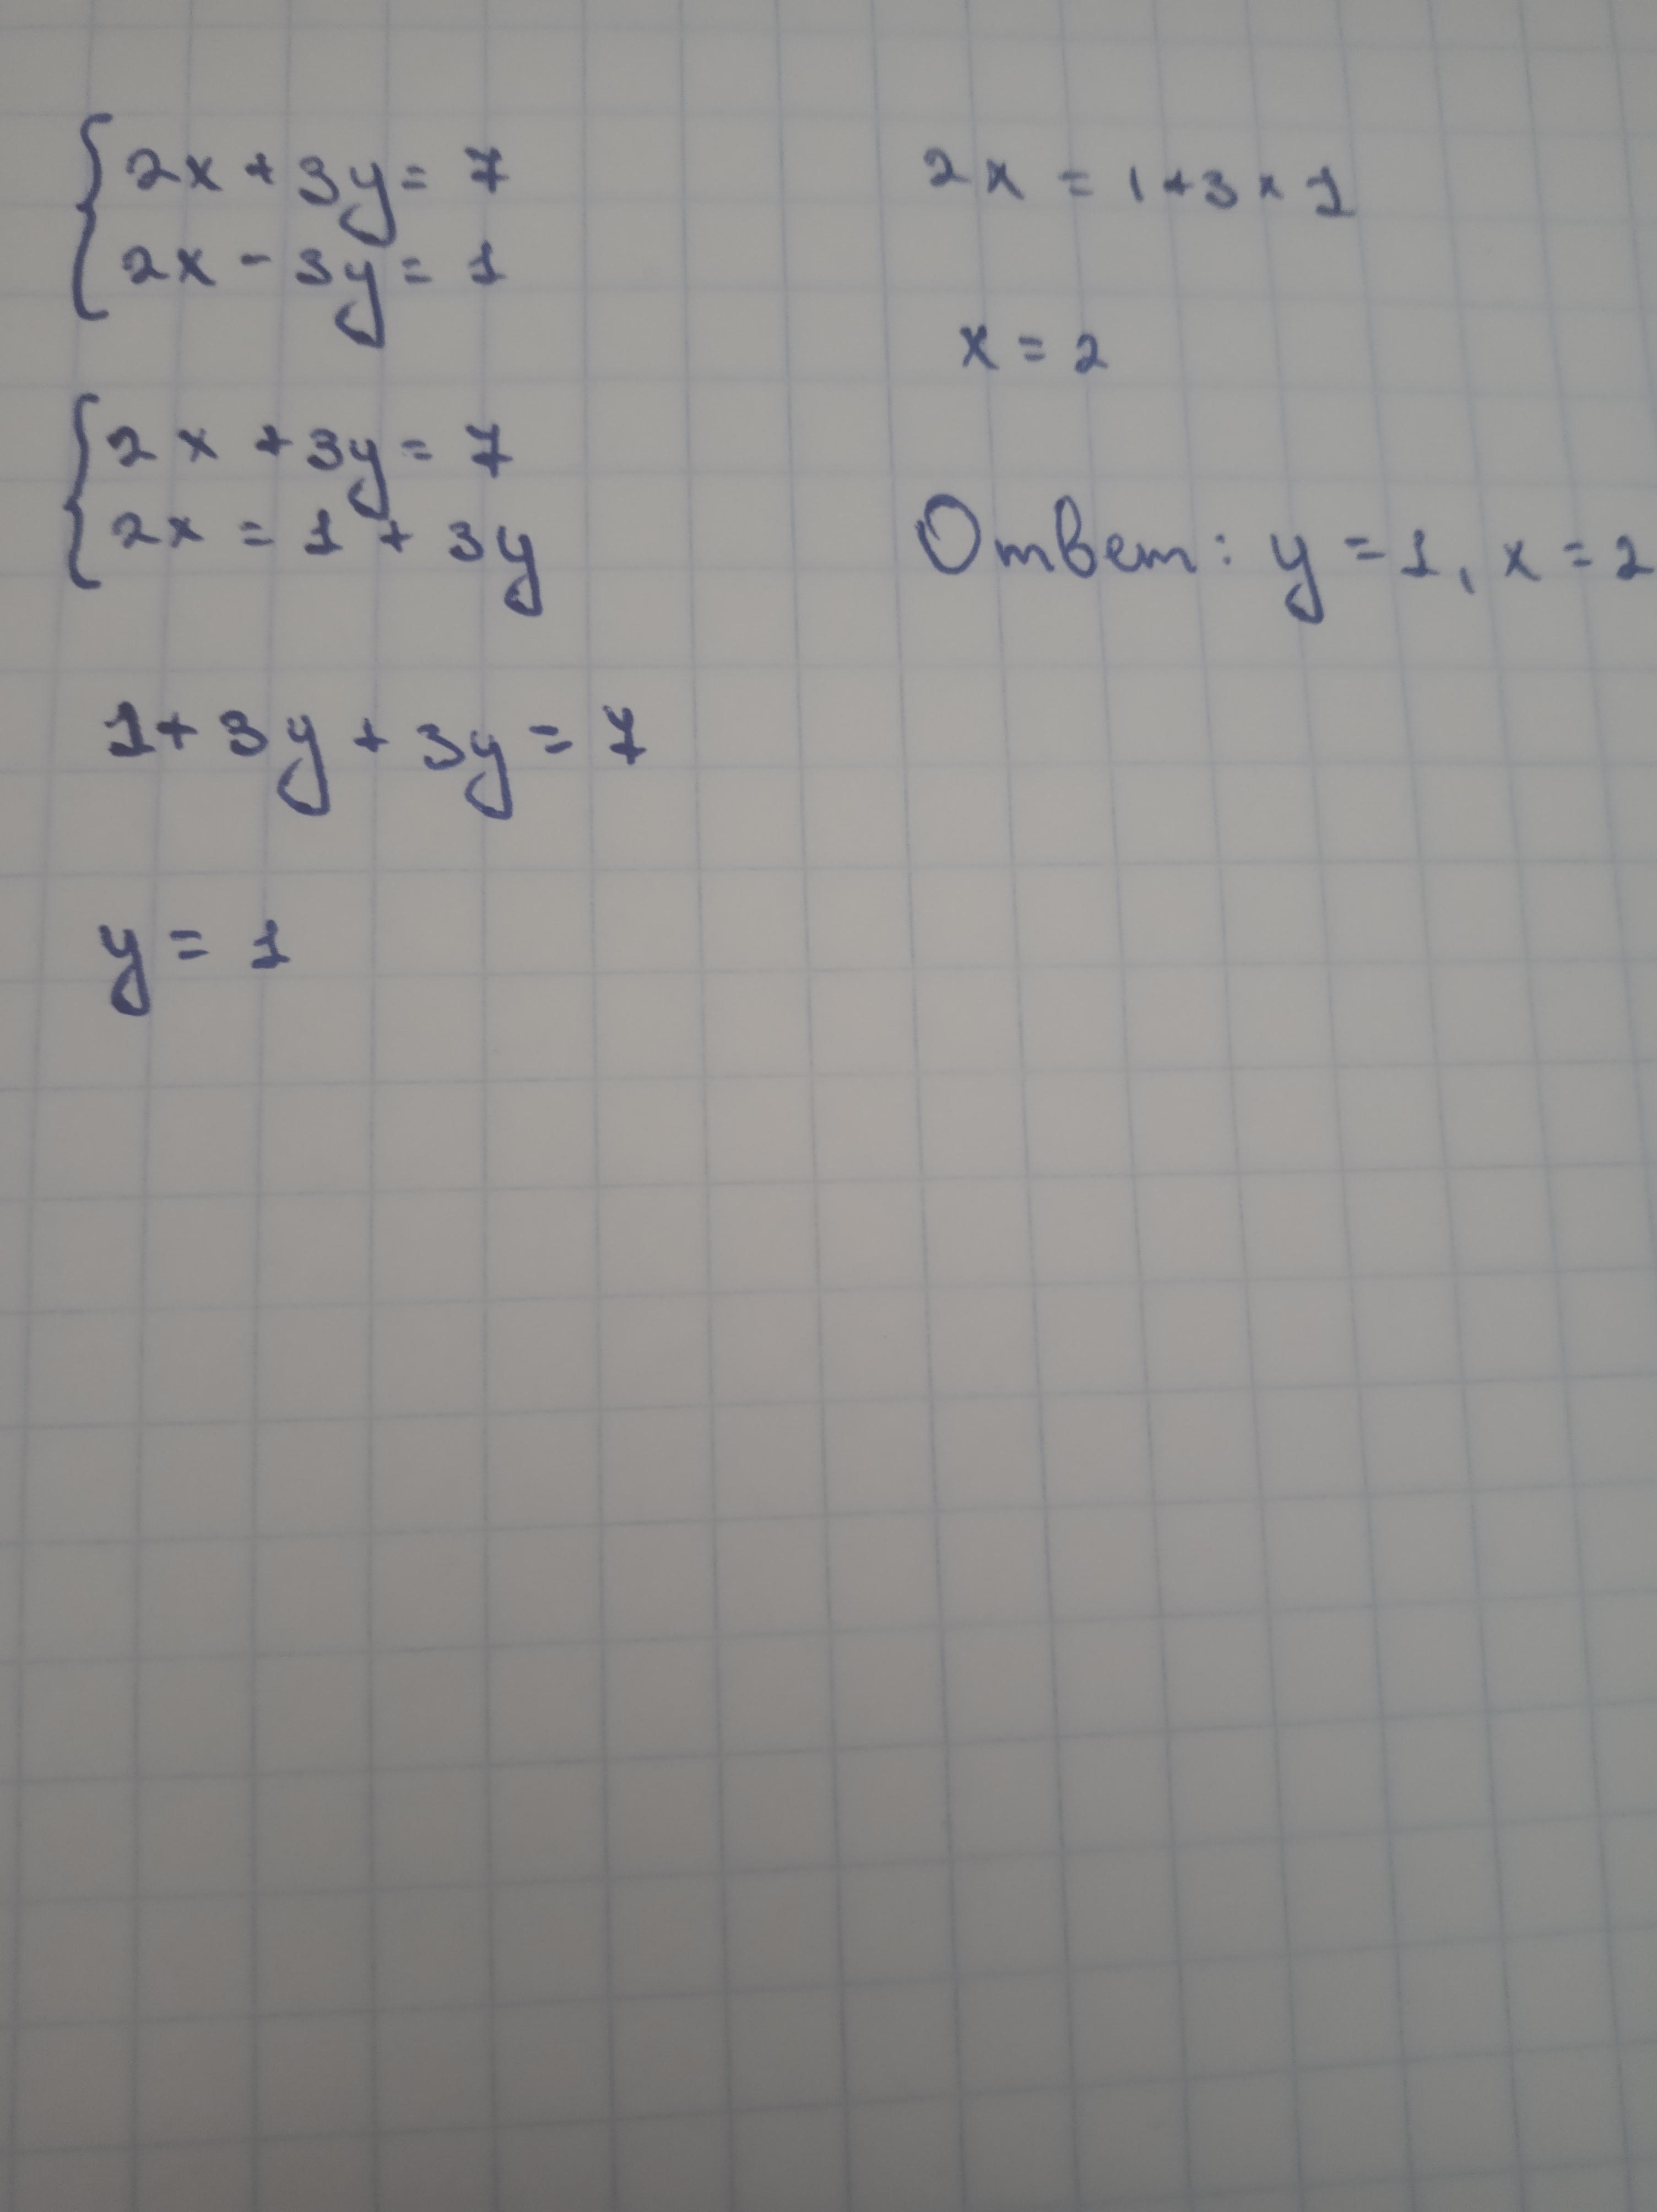 2x + 3y = 7
2x - 3y = 1
2x + 3y = 7
2x = 1 + 3y
1 + 3y + 3y = 7
y = 1
2x = 1 + 3 × 1
x = 2
Ответ: y = 1, x = 2